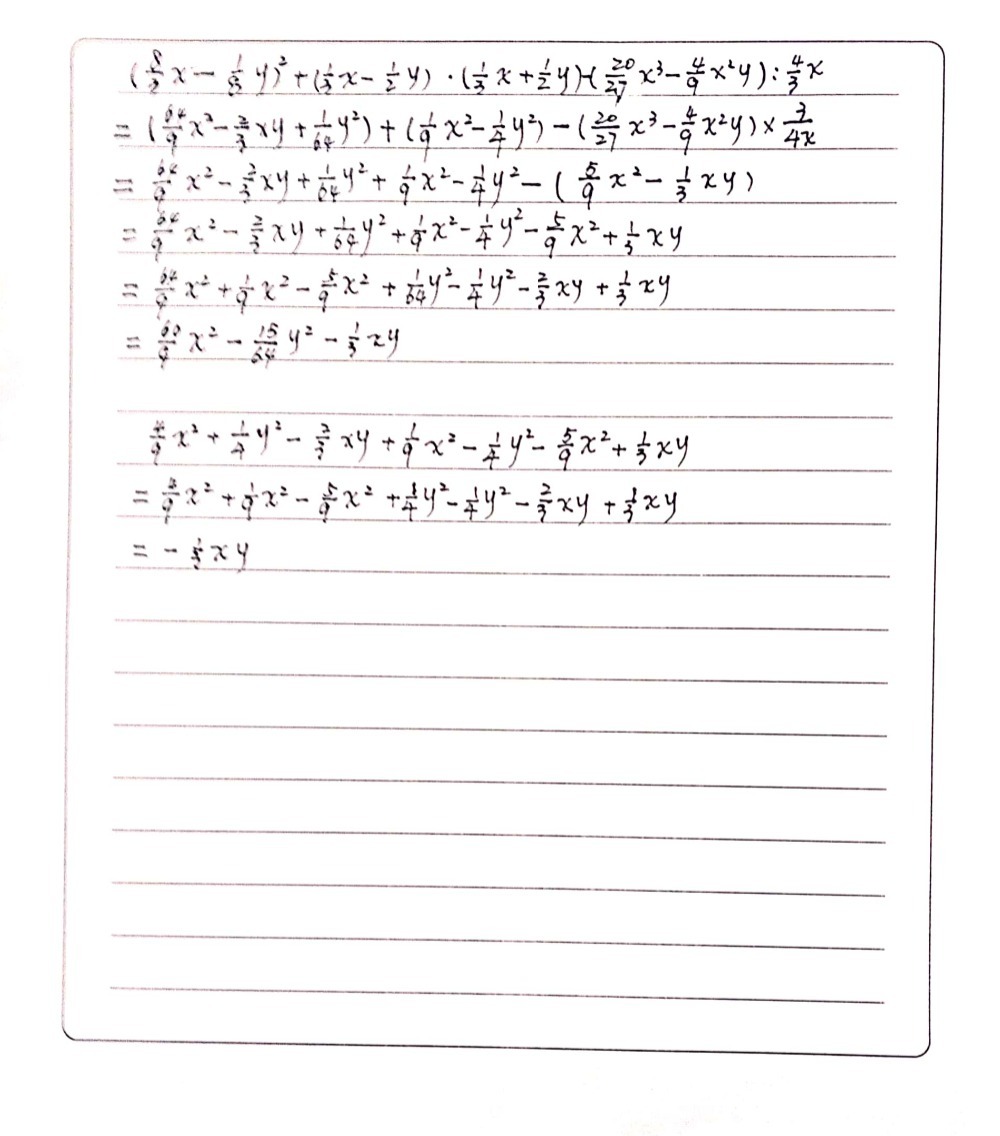 (8/3x - 1/8y)² + (1/3x - 1/2y) · (1/3x + 1/2y) - (20/27x³ - 4/9x²y) : 4/3x
= (64/9x² - 2/3xy + 1/64y²) + (1/9x² - 1/4y²) - (20/27x³ - 4/9x²y) × 3/4x
= 64/9x² - 2/3xy + 1/64y² + 1/9x² - 1/4y² - (5/9x² - 1/3xy)
= 64/9x² - 2/3xy + 1/64y² + 1/9x² - 1/4y² - 5/9x² + 1/3xy
= 64/9x² + 1/9x² - 5/9x² + 1/64y² - 1/4y² - 2/3xy + 1/3xy
= 60/9x² - 15/64y² - 1/3xy
4/9x² + 1/4y² - 2/3xy + 1/9x² - 1/4y² - 5/9x² + 1/3xy
= x² + 1/9x² - 5/9x² + 1/4y² - 1/4y² - 2/3xy + 1/3xy
= - 1/3xy